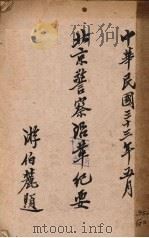 中華民國三十三年五月
北京警察沿革紀要
游伯麓題